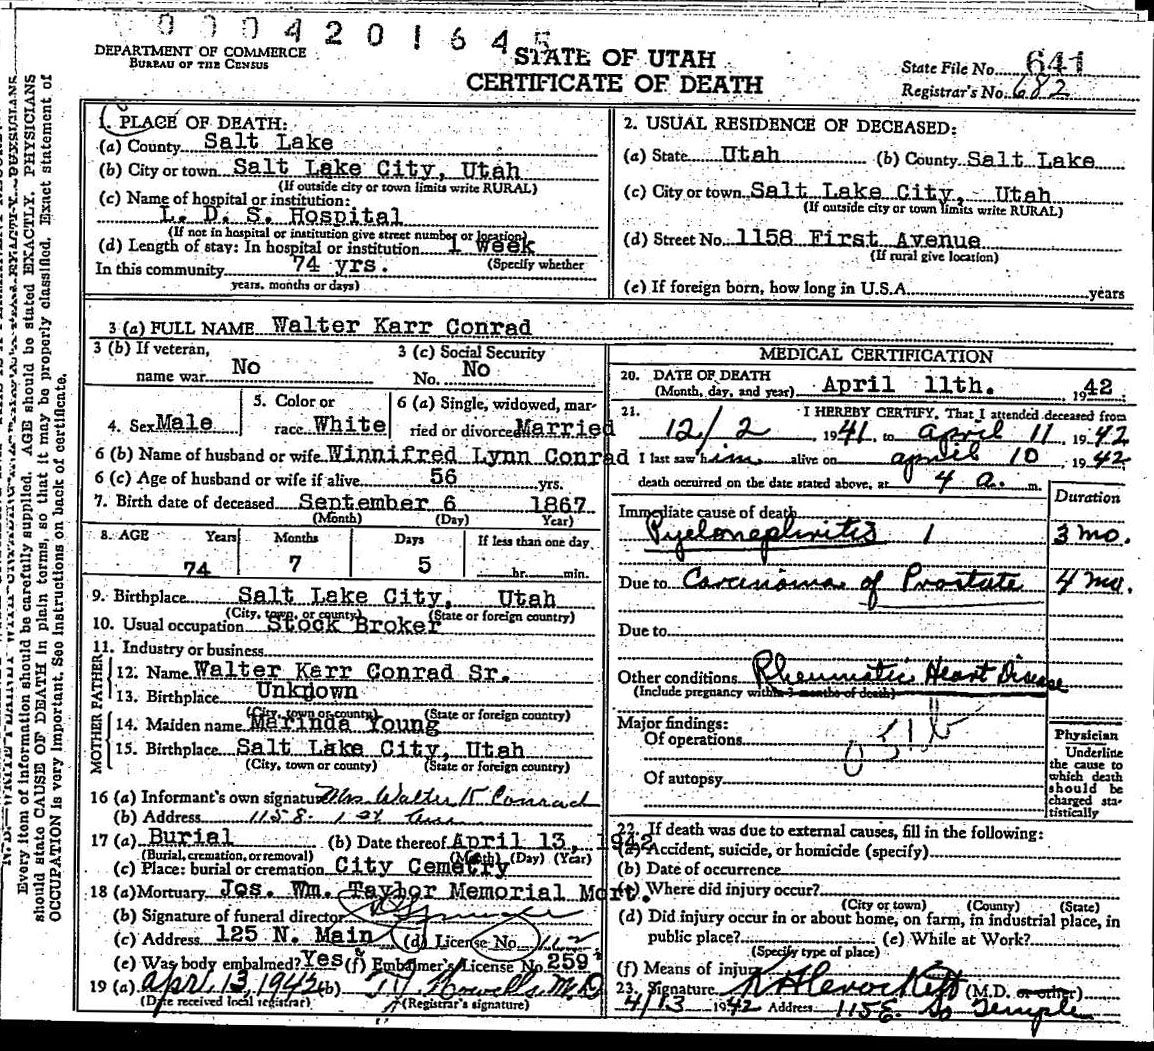 0004201645
DEPARTMENT OF COMMERCE
BUREAU OF THE CENSUS
STATE OF UTAH
CERTIFICATE OF DEATH
State File No. 641
Registrar's No. 682
Every item of information should be carefully supplied. AGE should be stated EXACTLY. PHYSICIANS
should state CAUSE OF DEATH in plain terms, so that it may be properly classified. Exact statement of
OCCUPATION is very important. See instructions on back of certificate.
1. PLACE OF DEATH:
(a) County Salt Lake
(b) City or town Salt Lake City, Utah
(If outside city or town limits write RURAL)
(c) Name of hospital or institution:
L. D. S. Hospital
(If not in hospital or institution give street number or location)
(d) Length of stay: In hospital or institution 1 week
(Specify whether
In this community 74 yrs.
years, months or days)
2. USUAL RESIDENCE OF DECEASED:
(a) State Utah (b) County Salt Lake
(c) City or town Salt Lake City, Utah
(If outside city or town limits write RURAL)
(d) Street No. 1158 First Avenue
(If rural give location)
(e) If foreign born, how long in U.S.A. years
3 (a) FULL NAME Walter Karr Conrad
3 (b) If veteran,
name war No
3 (c) Social Security
No. No
4. Sex Male
5. Color or
race White
6 (a) Single, widowed, mar-
ried or divorced Married
6 (b) Name of husband or wife Winnifred Lynn Conrad
6 (c) Age of husband or wife if alive 56 yrs.
7. Birth date of deceased September 6 1867
(Month) (Day) Year)
8. AGE Years Months Days If less than one day
74 7 5 hr. min.
9. Birthplace Salt Lake City, Utah
(City, town, or county) (State or foreign country)
10. Usual occupation Stock Broker
11. Industry or business
FATHER
12. Name Walter Karr Conrad Sr.
13. Birthplace Unknown
(City, town or county) (State or foreign country)
MOTHER
14. Maiden name Merinda Young
15. Birthplace Salt Lake City, Utah
(City, town or county) (State or foreign country)
16 (a) Informant's own signature Mrs Walter K Conrad
(b) Address 1158 1st Ave
17 (a) Burial (b) Date thereof April 13, 1942
(Burial, cremation, or removal) (Month) (Day) (Year)
(c) Place: burial or cremation City Cemetry
18 (a) Mortuary Jos. Wm. Taylor Memorial Mort.
(b) Signature of funeral director
(c) Address 125 N. Main (d) License No. 112
(e) Was body embalmed? Yes (f) Embalmer's License No. 259
19 (a) Apr 13, 1942 (b) Howells M.D
(Date received local registrar) (Registrar's signature)
MEDICAL CERTIFICATION
20. DATE OF DEATH
(Month, day, and year) April 11th. 1942
21. I HEREBY CERTIFY, That I attended deceased from
12/2 1941, to April 11 1942
I last saw him alive on April 10 1942
death occurred on the date stated above, at 4 a. m.
Duration
Immediate cause of death
Pyelonephritis 1 3 mo.
Due to Carcinoma of Prostate 4 mo.
Due to
Other conditions Rheumatic Heart Disease
(Include pregnancy within 3 months of death)
Major findings:
Of operations
Of autopsy
51b
Physician
Underline
the cause to
which death
should be
charged sta-
tistically
22. If death was due to external causes, fill in the following:
(a) Accident, suicide, or homicide (specify)
(b) Date of occurrence
(c) Where did injury occur?
(City or town) (County) (State)
(d) Did injury occur in or about home, on farm, in industrial place, in
public place? (e) While at Work?
(Specify type of place)
(f) Means of injury
23. Signature (M.D. or other)
4/13 1942 Address 115 E. So Temple